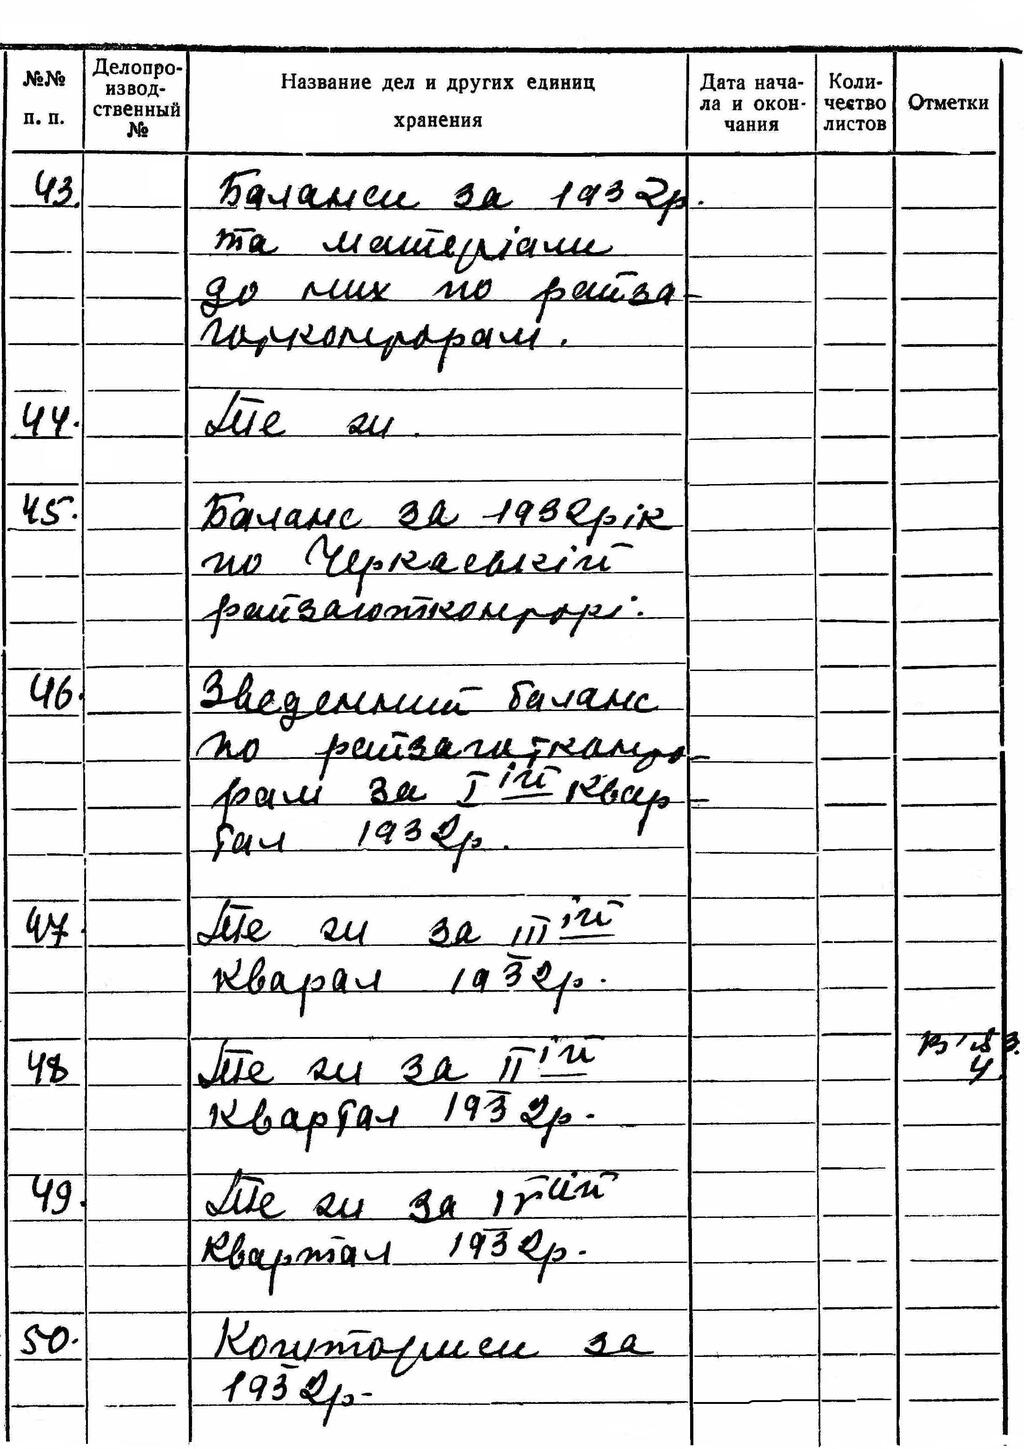 №№ п. п.
Делопроизвод-ственный №
Название дел и других единиц хранения
Дата нача-ла и окон-чания
Коли-чество листов
Отметки
43. Баланси за 1932р.
та матеріали
до них по райза-
готконторам.
44. Те ж.
45. Баланс за 1932рік
по Черкаській
райзаготконторі.
46. Зведенний баланс
по райзаготконто-
рам за I ій квар-
тал 1932р.
47. Те ж за III ій
кварал 1932р.
48 Те ж за II ій
квартал 1932р.
49. Те ж за IV ий
квартал 1932р.
50. Кошториси за
1932р.